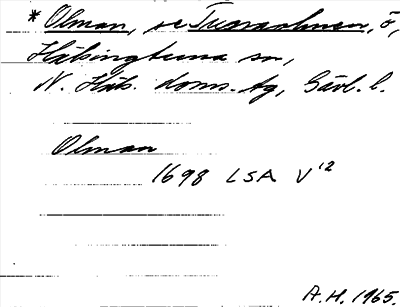 * Olman, se Tvaraolmen, ö,
Hälsingtuna sn,
N. Häls. doms. tg, Gävl. l.
Olman
1698 LSA V¹²
A.H. 1965.